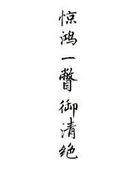 惊鸿一瞥御清绝